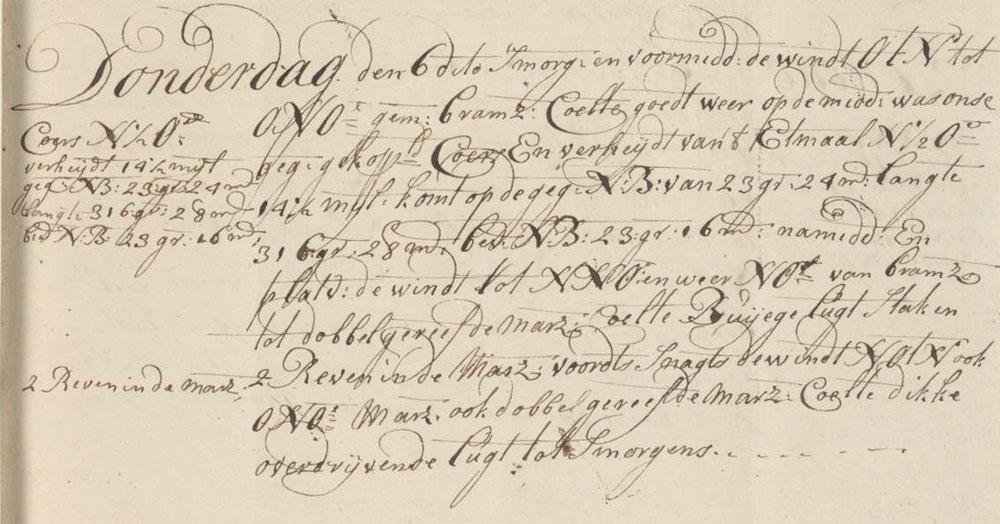 Donderdag den 6 dito Smorg: en voormidd: de windt O t N tot
ONO gem: bramz: Coelte goedt weer op de midd: was onse
geg: gekopp: Coers En verheijdt van't Etmaal N ½ O
14½ mijl: komt op de geg: N:B: van 23 gr: 24 md: Langte
316: gr: 28 md: bed: N:B: 23: gr: 16 md: namidd: En
platd: de windt tot NNO: en weer NOt van bramz
tot dobbel gereefde Marz: Coelte Buijege Lugt Staken
2 Reven in de Marz: voordts Snagts de windt N Ot N ook
ONO: Marz: ook dobbel gereefde Marz: Coelte dikke
overdrijvende Lugt tot Smorgens. - - - - -
Coers N ½ O:
verheijdt 14½ mijl
geg: N:B: 23 gr: 24 md
Langte 316 gr: 28 md
bed: N:B: 23 gr: 16 md:
2 Reven in de Marz.